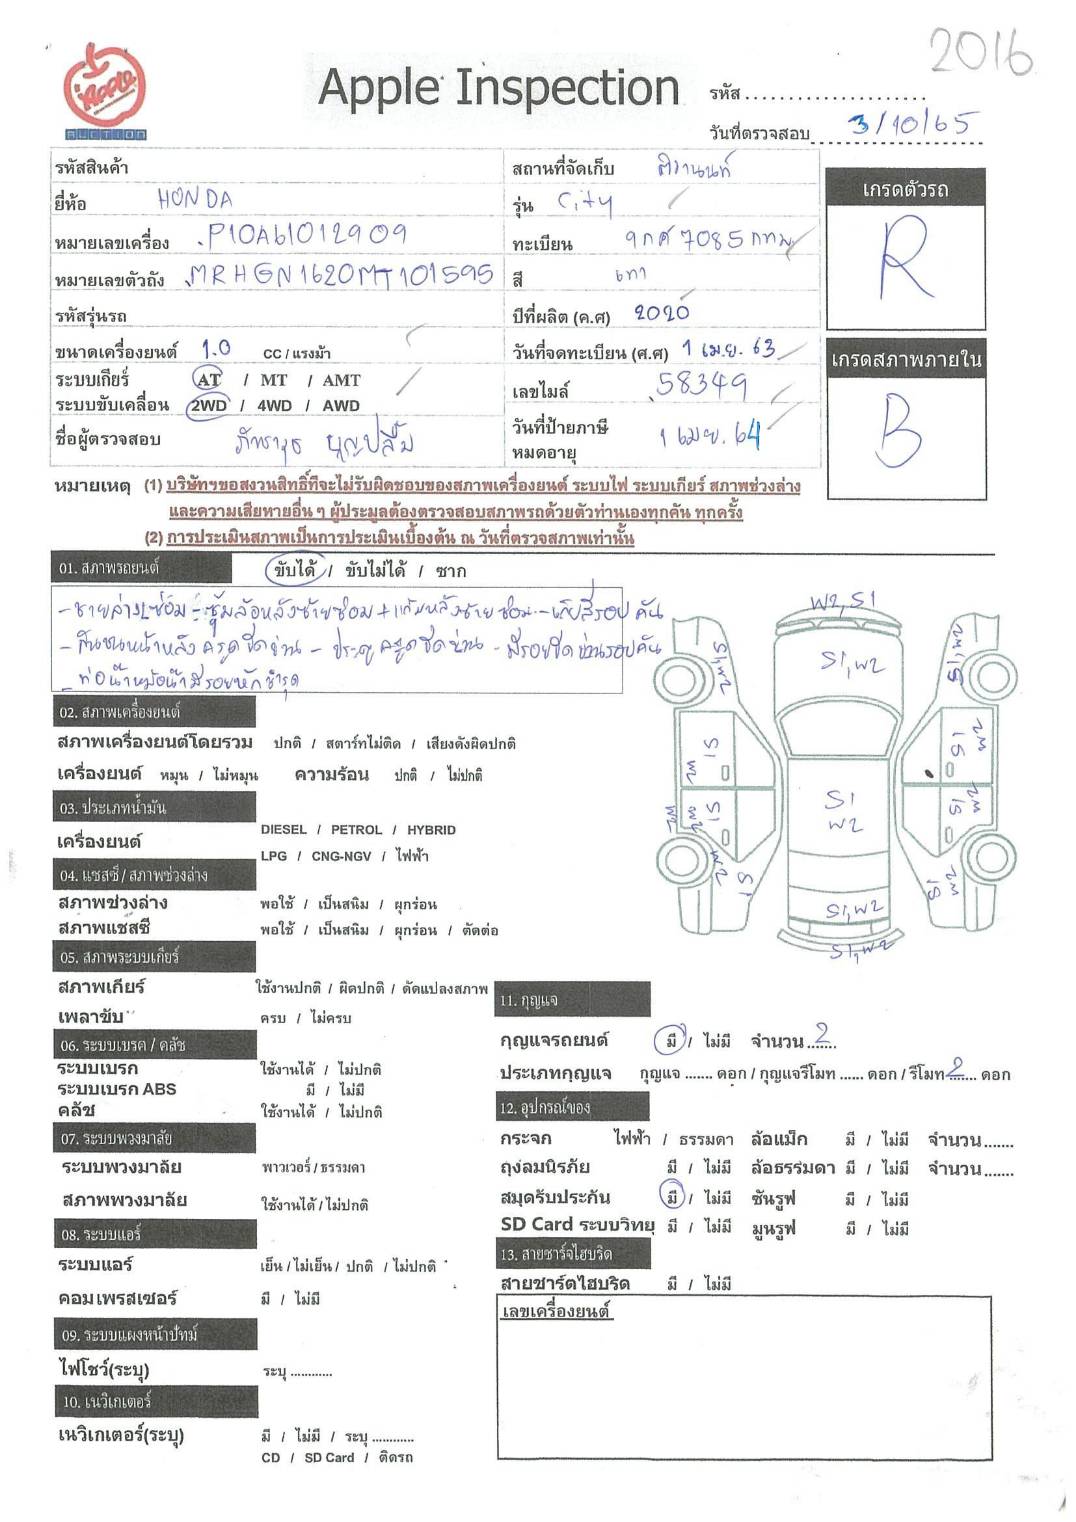 2016
Apple
AUCTION
Apple Inspection
รหัส......................
วันที่ตรวจสอบ 3/10/65
รหัสสินค้า
สถานที่จัดเก็บ ติวานนท์
ยี่ห้อ HONDA
รุ่น City
หมายเลขเครื่อง P10A61012909
ทะเบียน 9กศ 7085 กทม
หมายเลขตัวถัง MRHGN1620MT101595
สี เทา
รหัสรุ่นรถ
ปีที่ผลิต (ค.ศ) 2020
ขนาดเครื่องยนต์ 1.0 CC / แรงม้า
วันที่จดทะเบียน (ค.ศ) 1 เม.ย. 63
ระบบเกียร์ AT / MT / AMT
ระบบขับเคลื่อน 2WD / 4WD / AWD
เลขไมล์ 58349
ชื่อผู้ตรวจสอบ
วันที่ป้ายภาษี
หมดอายุ 1 เมย. 64
เกรดตัวรถ
R
เกรดสภาพภายใน
B
หมายเหตุ (1) บริษัทฯขอสงวนสิทธิ์ที่จะไม่รับผิดชอบของสภาพเครื่องยนต์ ระบบไฟ ระบบเกียร์ สภาพช่วงล่าง
และความเสียหายอื่น ๆ ผู้ประมูลต้องตรวจสอบสภาพรถด้วยตัวท่านเองทุกคัน ทุกครั้ง
(2) การประเมินสภาพเป็นการประเมินเบื้องต้น ณ วันที่ตรวจสภาพเท่านั้น
01. สภาพรถยนต์
ขับได้ / ขับไม่ได้ / ซาก
- ชายล่างLซ่อม - ซุ้มล้อหลังซ้ายซ่อม + แก้มหลังซ้ายซ่อม - เก็บสีรอบคัน
- กันชนหน้าหลังครูดขีดข่วน - ประตูครูดขีดข่วน - มีรอยขีดข่วนรอบคัน
- ท่อน้ำหม้อน้ำมีรอยหักชำรุด
W2,S1
S1,W2
S1,W2
S1,W2
S1 W2
S1 W2
S1
W2
S1 W2
S1 W2
W2
W2 S1
S1 W2
S1,W2
S1,W2
02. สภาพเครื่องยนต์
สภาพเครื่องยนต์โดยรวม ปกติ / สตาร์ทไม่ติด / เสียงดังผิดปกติ
เครื่องยนต์ หมุน / ไม่หมุน ความร้อน ปกติ / ไม่ปกติ
03. ประเภทน้ำมัน
เครื่องยนต์
DIESEL / PETROL / HYBRID
LPG / CNG-NGV / ไฟฟ้า
04. แชสซี / สภาพช่วงล่าง
สภาพช่วงล่าง พอใช้ / เป็นสนิม / ผุกร่อน
สภาพแชสซี พอใช้ / เป็นสนิม / ผุกร่อน / ตัดต่อ
05. สภาพระบบเกียร์
สภาพเกียร์ ใช้งานปกติ / ผิดปกติ / ดัดแปลงสภาพ
เพลาขับ ครบ / ไม่ครบ
06. ระบบเบรค / คลัช
ระบบเบรก ใช้งานได้ / ไม่ปกติ
ระบบเบรก ABS มี / ไม่มี
คลัช ใช้งานได้ / ไม่ปกติ
07. ระบบพวงมาลัย
ระบบพวงมาลัย พาวเวอร์ / ธรรมดา
สภาพพวงมาลัย ใช้งานได้ / ไม่ปกติ
08. ระบบแอร์
ระบบแอร์ เย็น / ไม่เย็น / ปกติ / ไม่ปกติ
คอมเพรสเซอร์ มี / ไม่มี
09. ระบบแผงหน้าปัทม์
ไฟโชว์(ระบุ) ระบุ ............
10. เนวิเกเตอร์
เนวิเกเตอร์(ระบุ) มี / ไม่มี / ระบุ ............
CD / SD Card / ติดรถ
11. กุญแจ
กุญแจรถยนต์ มี / ไม่มี จำนวน 2
ประเภทกุญแจ กุญแจ ....... ดอก / กุญแจรีโมท ...... ดอก / รีโมท 2 ดอก
12. อุปกรณ์ของ
กระจก ไฟฟ้า / ธรรมดา ล้อแม็ก มี / ไม่มี จำนวน.......
ถุงลมนิรภัย มี / ไม่มี ล้อธรรมดา มี / ไม่มี จำนวน.......
สมุดรับประกัน มี / ไม่มี ซันรูฟ มี / ไม่มี
SD Card ระบบวิทยุ มี / ไม่มี มูนรูฟ มี / ไม่มี
13. สายชาร์จไฮบริด
สายชาร์ตไฮบริด มี / ไม่มี
เลขเครื่องยนต์